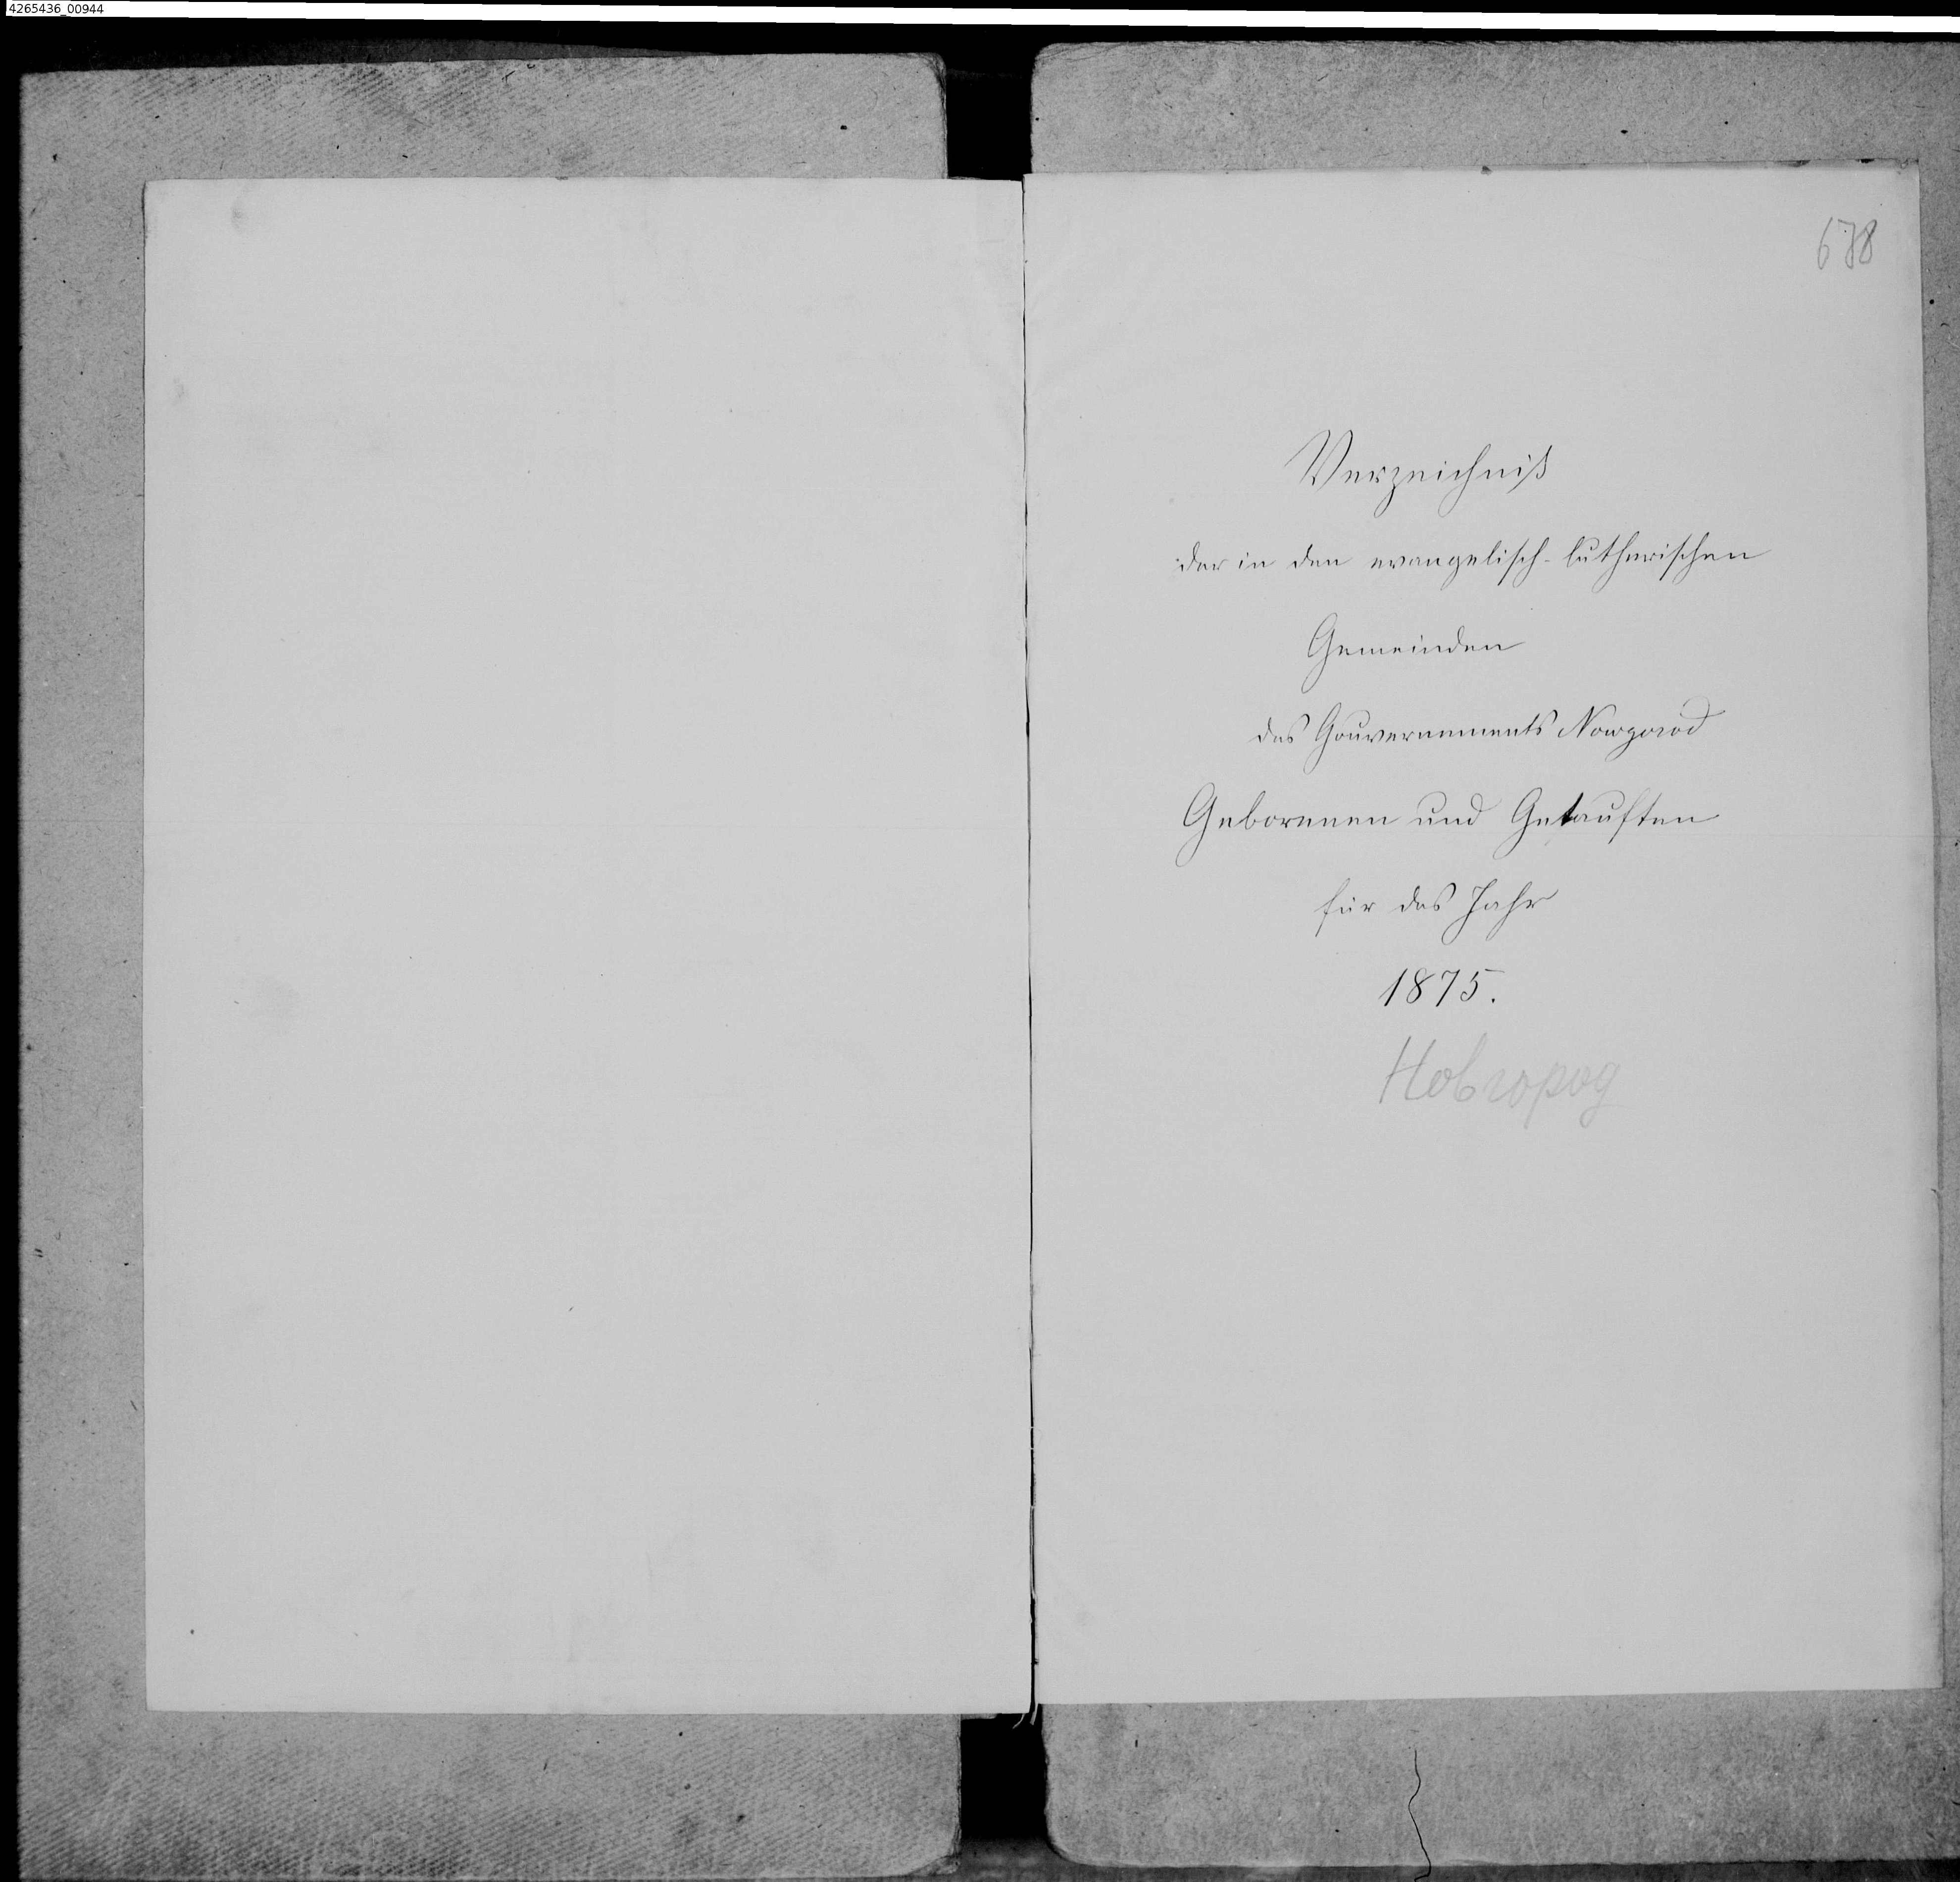 4265436_00944
Verzeichniß
der in den evangelisch-lutherischen
Gemeinden
des Gouvernements Nowgorod
Geborenen und Getauften
für das Jahr
1875.
Новгород